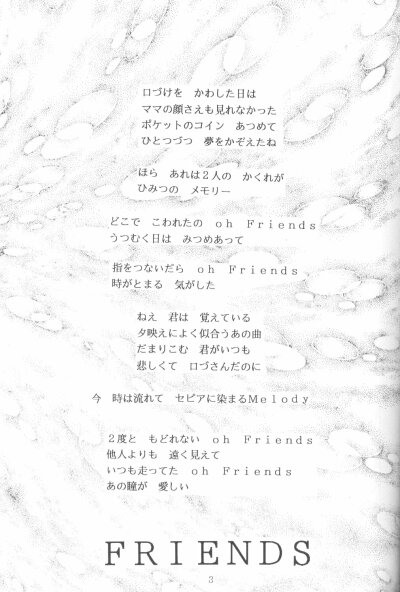 口づけを　かわした日は
ママの顔さえも見れなかった
ポケットのコイン　あつめて
ひとつづつ　夢をかぞえたね
ほら　あれは２人の　かくれが
ひみつの　メモリー
どこで　こわれたの　ｏｈ　Ｆｒｉｅｎｄｓ
うつむく日は　みつめあって
指をつないだら　ｏｈ　Ｆｒｉｅｎｄｓ
時がとまる　気がした
ねえ　君は　覚えている
夕映えによく似合うあの曲
だまりこむ　君がいつも
悲しくて　口づさんだのに
今　時は流れて　セピアに染まるＭｅｌｏｄｙ
２度と　もどれない　ｏｈ　Ｆｒｉｅｎｄｓ
他人よりも　遠く見えて
いつも走ってた　ｏｈ　Ｆｒｉｅｎｄｓ
あの瞳が　愛しい
FRIENDS
3